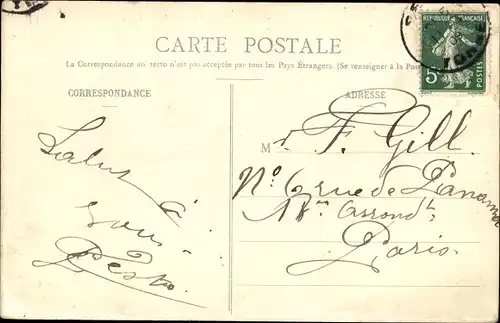 CARTE POSTALE
La Correspondance au recto n'est pas acceptée par tous les Pays Étrangers. (Se renseigner à la Post
CORRESPONDANCE
ADRESSE
RÉPUBLIQUE FRANÇAISE
5c
POSTES
Salut à
tous
M r. F. Gill.
No. 6 rue de Panama
18 em Arrondt
Paris